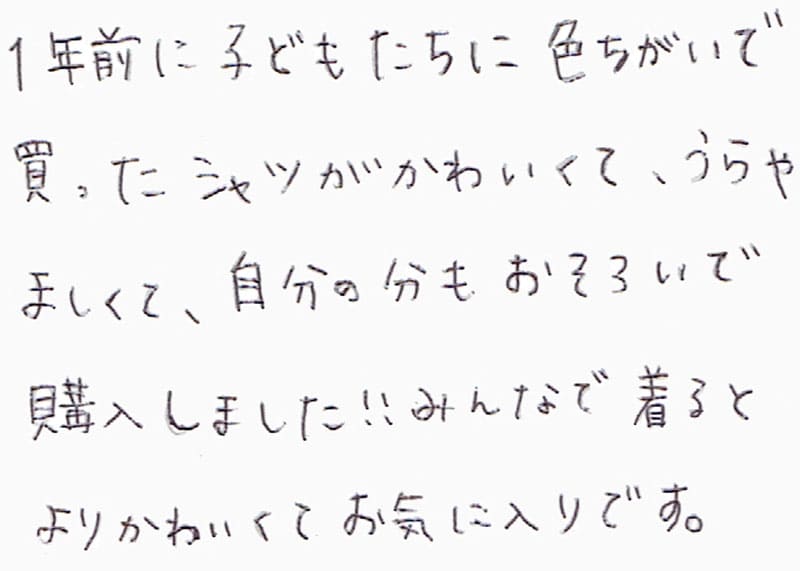 1年前に子どもたちに色ちがいで
買ったシャツがかわいくて、うらや
ましくて、自分の分もおそろいで
購入しました!!みんなで着ると
よりかわいくてお気に入りです。